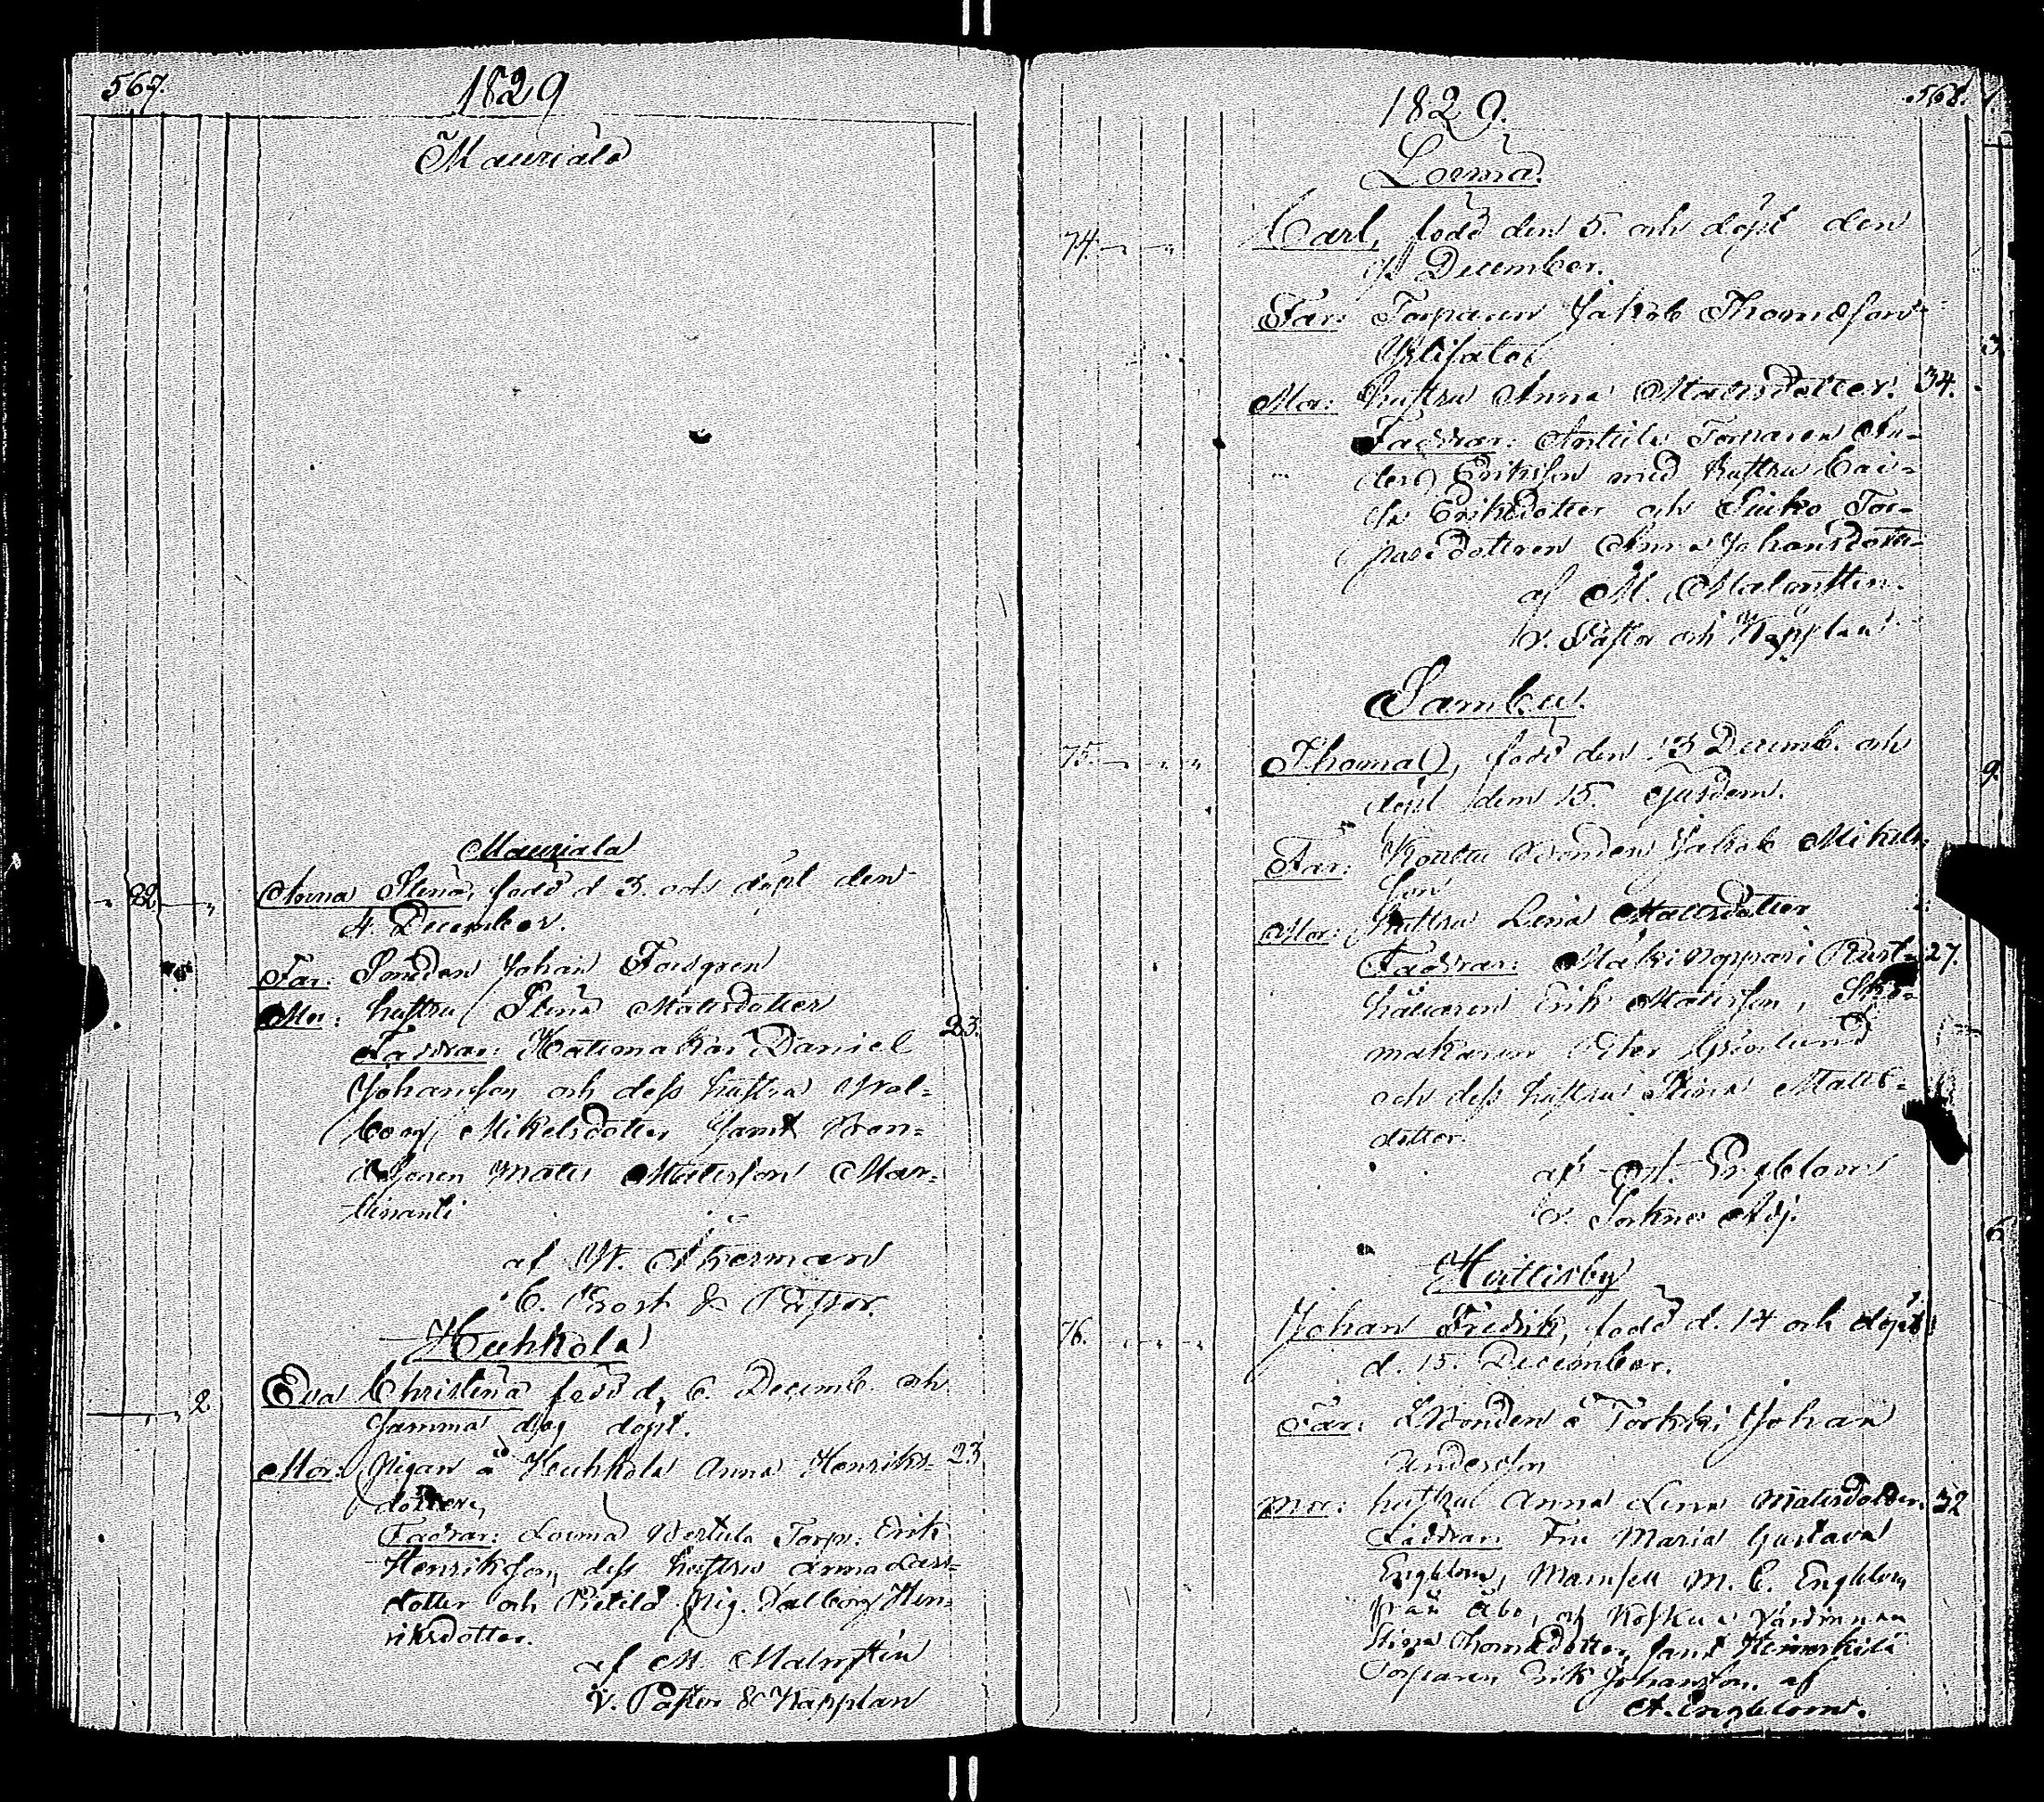 567.
1829
Mauriala
Mauriala
22 Anna Stina, född d 3. och döpt den
4 December.
Far: Smeden Johan Forsgren
Mor: hustru Stina Matsdotter 23.
Faddrar: Hattmakar Daniel
Johansson och dess hustru Wal-
borg Mikelsdotter samt Bon-
desonen Mats Matsson Mar-
tinanti
af W. Åkerman
C. Prost & Pastor.
Huhkola
2 Eva Christina född d. 6. Decemb. och
samma dag döpt.
Mor: Pigan å Huhkola Anna Henriks- 23
dotter,
Faddrar: Loima Bertula Torp: Erik
Henriksson, dess hustru Anna Lars-
dotter och Pietilä Pig. Valborg Hen-
riksdotter.
af M. Malmstén
V. Pastor & Kapplan
568.
1829.
Loima.
74. Carl, född den 5. och döpt den
December.
Far: Torparen Jakob Thomasson
Ylisato
Mor: hustru Anna Matsdotter. 34.
Faddrar: Anttila Torparen An-
ders Eriksson med hustru Cai-
sa Eriksdotter och Torp-
aredottren Anna Johansdotter
af M. Malmstén.
v. Pastor och Kapplan
Sambu.
75. Thomas, född den 13 Decemb. och
döpt den 15. Ejusdem.
Far: Konttu Bonden Jakob Mikels-
son
Mor: hustru Lena Mattsdotter
Faddrar: Mäki Noppari Rust- 27.
hållaren Erik Matsson, Sko-
makaren Peter Grönlund
och dess hustru Stina Matts-
dotter.
af A. Engblom
v. Sockne Adj.
Huttisby
76. Johan Fredrik, född d. 14 och döpt
d. 15. December.
Far: Bonden å Torkki Johan
Andersson
Mor: hustru Anna Lena Matsdotter 32
Faddrar: Fru Maria Gustava
Engblom, Mamsell M. C. Engblom
från Åbo, och Koskua Värdinnan
Stina Thomasdotter, samt
Torparen Erik Johansson. af
A. Engblom.